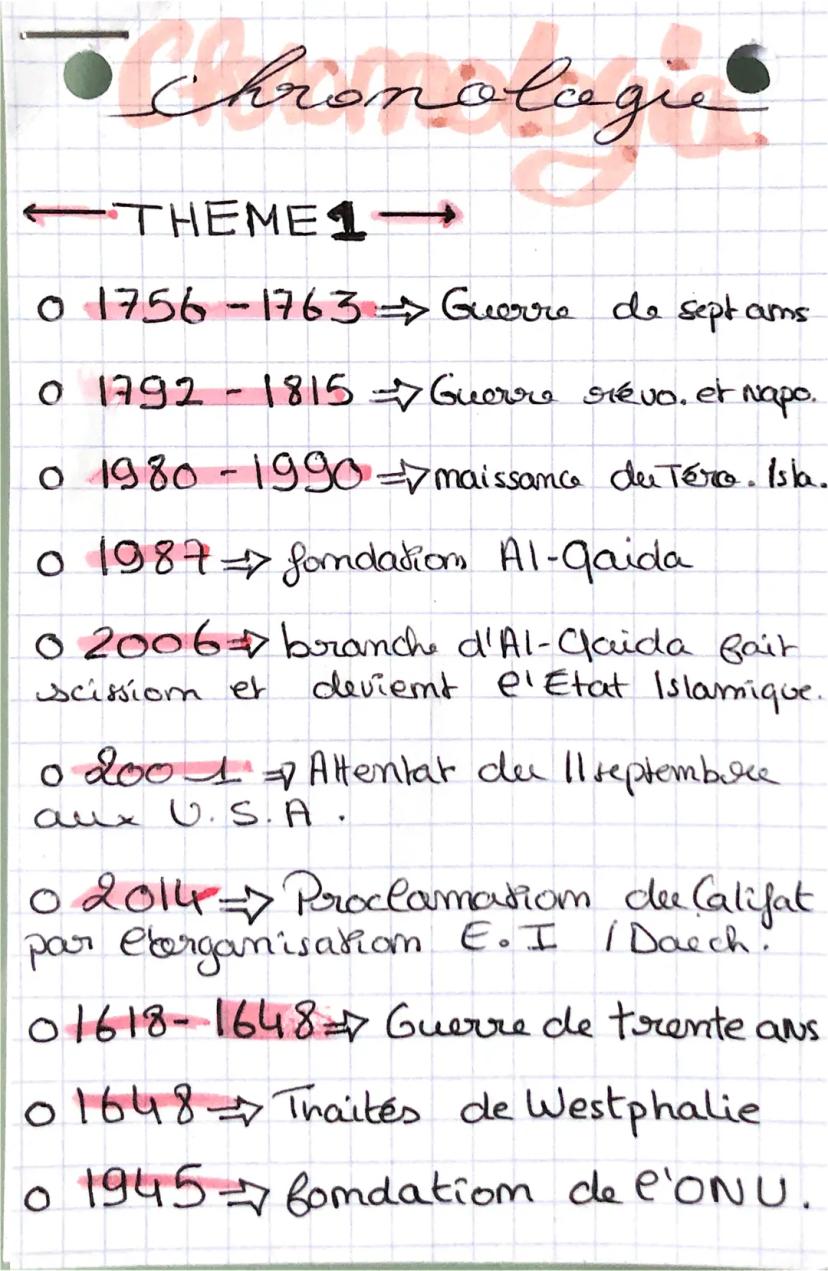 Chronologie
← THEME 1 →
o 1756 - 1763 ⇒ Guerre de sept ans
o 1792 - 1815 ⇒ Guerre révo. et Napo.
o 1980 - 1990 ⇒ naissance du Téro. Isla.
o 1987 ⇒ fondation Al-Qaida
o 2006 ⇒ branche d'Al-Qaida fait
scission et devient l'Etat Islamique.
o 2001 ⇒ Attentat du 11 septembre
aux U.S.A.
o 2014 ⇒ Proclamation du Califat
par l'organisation E.I / Daech.
o 1618 - 1648 ⇒ Guerre de trente ans
o 1648 ⇒ Traités de Westphalie
o 1945 ⇒ fondation de l'ONU.